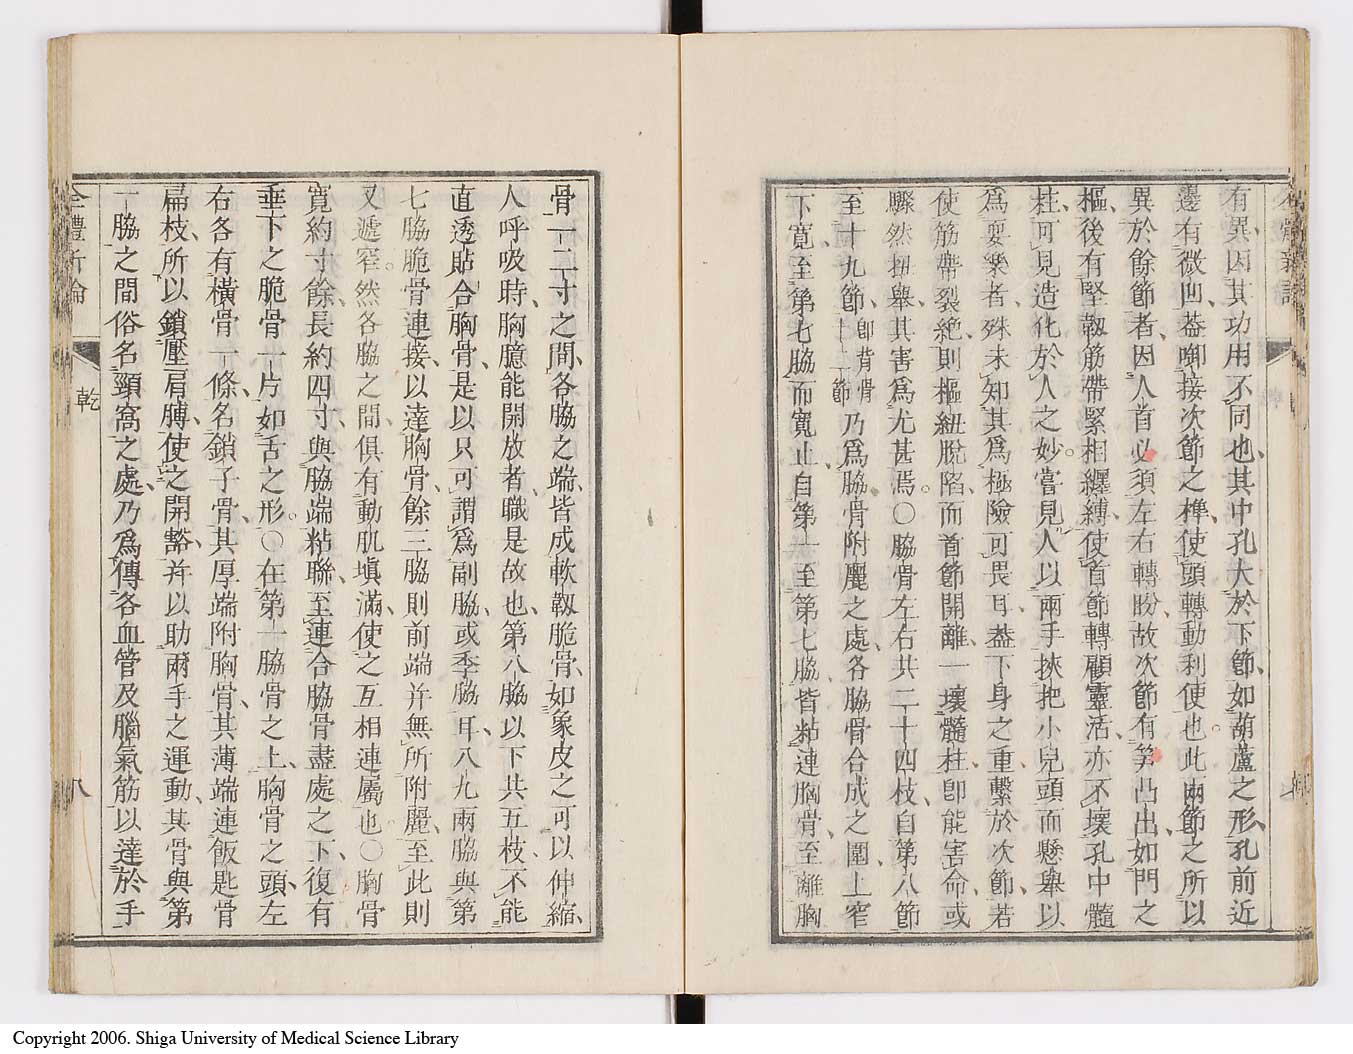 有異因其功用不同也其中孔大於下節如葫蘆之形孔前近
邊有微凹葢啣接次節之榫使頭轉動利便也此兩節之所以
異於餘節者因人首必須左右轉盼故次節有笋凸出如門之
樞後有堅韌筋帶緊相纒縳使首節轉顧靈活亦不壞孔中髓
柱可見造化於人之妙嘗見人以兩手挾把小兒頭而懸舉以
爲耍樂者殊未知其爲極險可畏耳葢下身之重繫於次節若
使筋帶裂絶則樞紐脫陷而首節開離一壞髓柱卽能害命或
驟然扭舉其害爲尤甚焉〇脇骨左右共二十四枝自第八節
至十九節卽背骨十二節乃爲脇骨附麗之處各脇骨合成之圍上窄
下寬至第七脇而寬止自第一至第七脇皆粘連胸骨至離胸
骨一二寸之間各脇之端皆成軟韌脆骨如象皮之可以伸縮
人呼吸時胸臆能開放者職是故也第八脇以下共五枝不能
直透貼合胸骨是以只可謂爲副脇或季脇耳八九兩脇與第
七脇脆骨連接以達胸骨餘三脇則前端并無所附麗至此則
又遞窄然各脇之間俱有動肌塡滿使之互相連屬也〇胸骨
寬約寸餘長約四寸與脇端粘聯至連合脇骨盡處之下復有
垂下之脆骨一片如舌之形〇在第一脇骨之上胸骨之頭左
右各有橫骨一條名鎖子骨其厚端附胸骨其薄端連飯匙骨
扁枝所以鎖壓肩膊使之開豁并以助兩手之運動其骨與第
一脇之間俗名頸窩之處乃爲傳各血管及腦氣筋以達於手
全體新論
乾
八